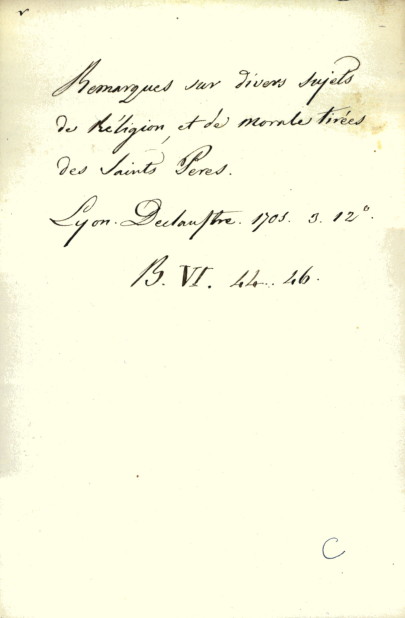 Remarques sur divers sujets
de Réligion, et de morale tirées
des Saints Peres.
Lyon. Declaustre. 1705. 3. 12°.
B. VI. 44..46.
C